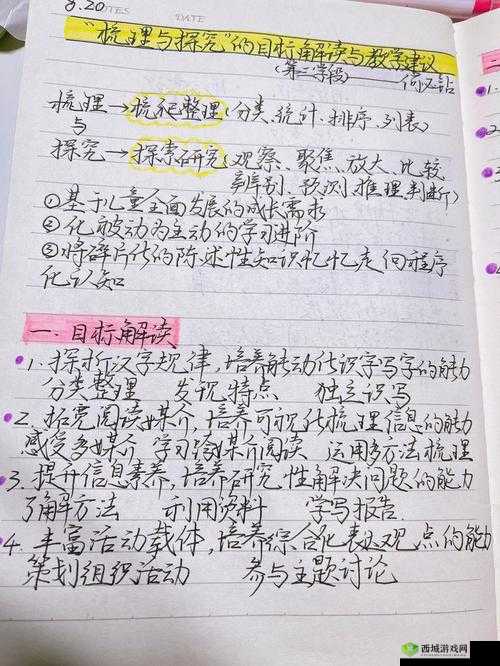 8.20 NOTES DATE
“梳理与探究”的目标解读与教学建议
(第二学段)——何必钻
梳理→梳记整理(分类、统计、排序、列表)
与
探究→探索研究(观察、聚焦、放大、比较
辨别、预测、推理判断)
①基于儿童全面发展的成长需求
②化被动为主动的学习进阶
③将碎片化的陈述性知识忆忆走向程序
化认知
一. 目标解读
1. 探析汉字规律,培养能动化识字写字的能力
分类整理 发现特点 独立识写
2. 拓宽阅读媒介,培养可视化梳理信息的能力
感受多媒介 学习跨媒介阅读 运用多方法梳理
3. 提升信息素养,培养研究性解决问题的能力
了解方法 利用资料 学写报告.
4. 丰富活动载体,培养综合化表达观点的能力
策划组织活动 参与主题讨论
西城游戏网